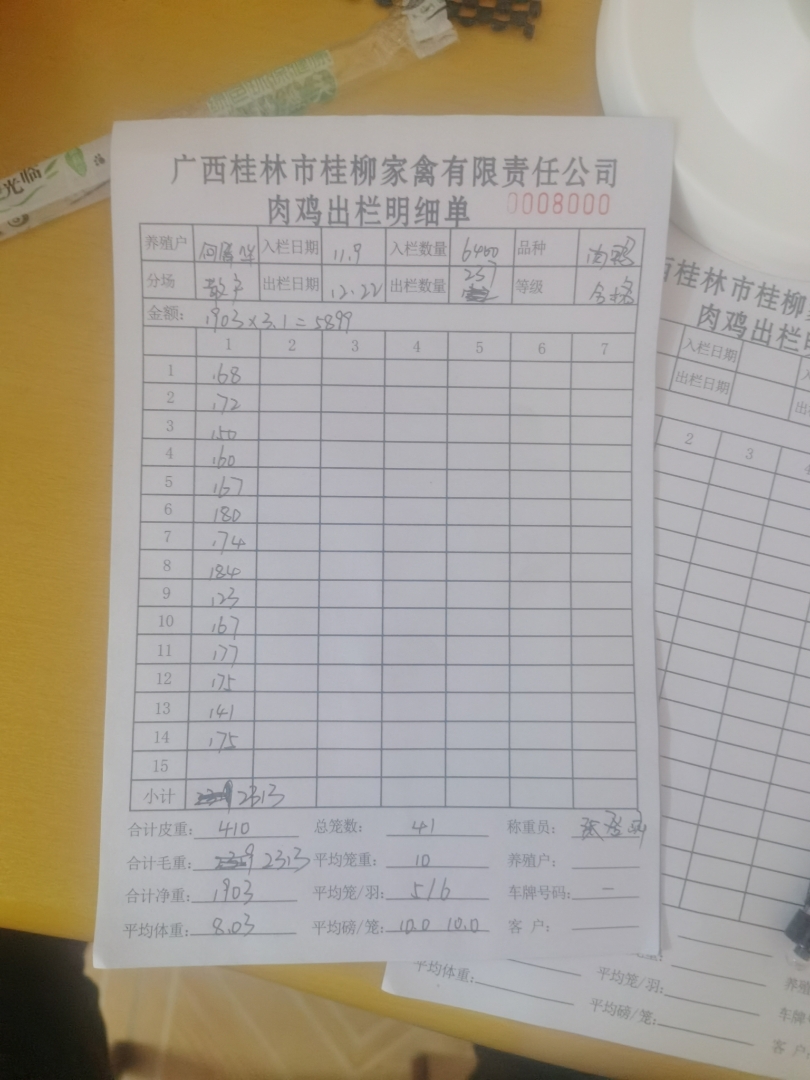 光临
广西桂林市桂柳家禽有限责任公司
肉鸡出栏明细单 0008000
养殖户 入栏日期 11.9 入栏数量 6400 品种 肉鸡
分场 出栏日期 12.22 出栏数量 237 等级 合格
金额: 1903×3.1=5899
1 2 3 4 5 6 7
1 168
2 172
3 150
4 160
5 167
6 180
7 174
8 184
9 123
10 167
11 177
12 175
13 141
14 175
15
小计 2313
合计皮重: 410 总笼数: 41 称重员:
合计毛重: 2313 平均笼重: 10 养殖户:
合计净重: 1903 平均笼/羽: 5/6 车牌号码: —
平均体重: 8.03 平均磅/笼: 10.0 10.0 客 户:
西桂林市桂柳家
肉鸡出栏明
入栏日期
出栏日期
2 3 4
平均体重:
平均笼/羽:
平均磅/笼:
养殖
车牌号
客 户